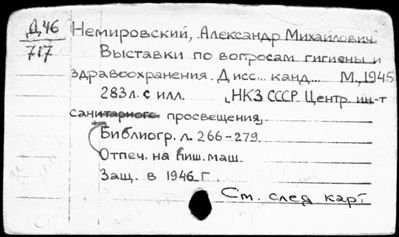 Д46
717
Немировский, Александр Михайлович
Выставки по вопросам гигиены и
здравоохранения. Дисс... канд... М., 1945
283 л. с илл. "НКЗ СССР. Центр. ин-т
санитарного просвещения.
Библиогр. л. 266-279.
Отпеч. на пиш. маш.
Защ. в 1946 г.
См. след карт